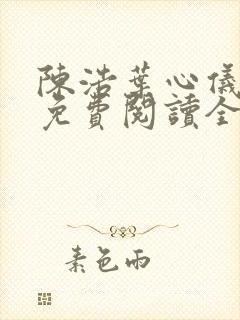 陳浩葉心儀
免費閱讀全
素色雨